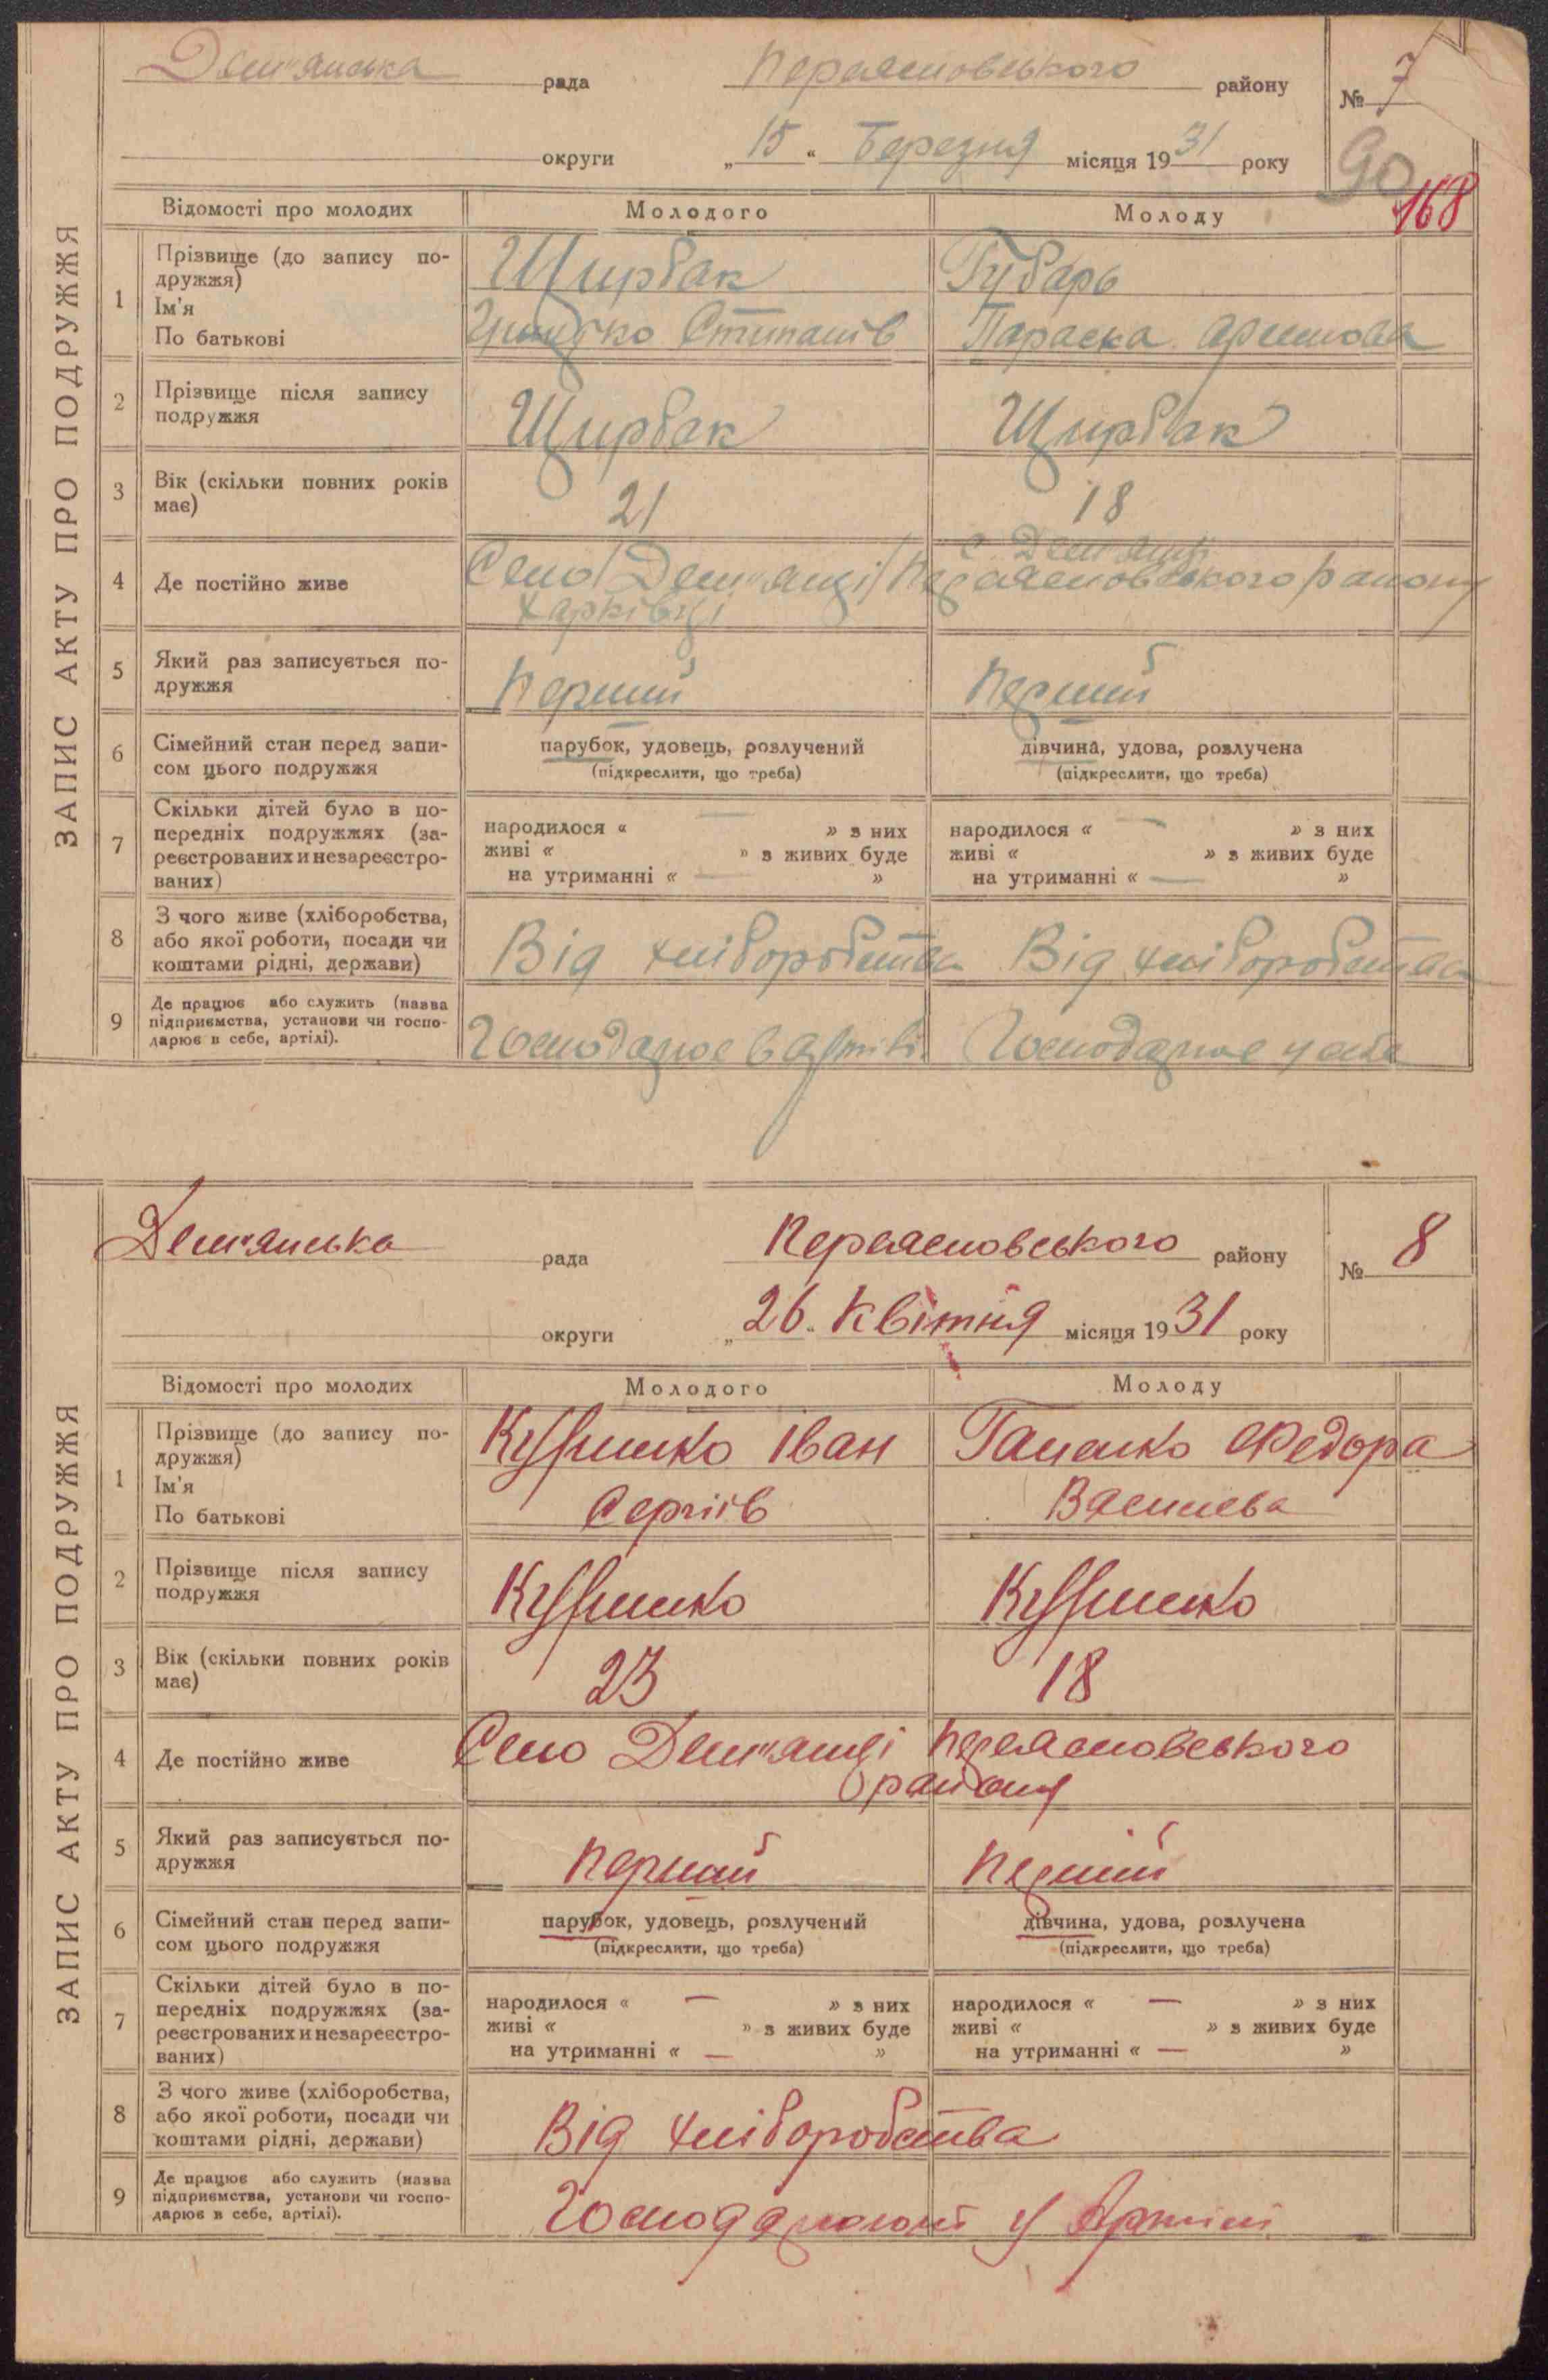 Дем'янська рада Переяславського району № 7
округи „ 15 “ Березня місяця 1931 року
90
168
ЗАПИС АКТУ ПРО ПОДРУЖЖЯ
Відомості про молодих Молодого Молоду
1 Прізвище (до запису по- Щирбак Губарь
дружжя)
Ім'я
По батькові Степанів Параска
2 Прізвище після запису
подружжя Щирбак Щирбак
3 Вік (скільки повних років
має) 21 18
с Дем'янці
4 Де постійно живе Село Дем'янці Переяславського району
Харківці
5 Який раз записується по-
дружжя Перший Перший
6 Сімейний стан перед запи- парубок, удовець, розлучений дівчина, удова, розлучена
сом цього подружжя (підкреслити, що треба) (підкреслити, що треба)
7 Скільки дітей було в по-
передніх подружжях (за- народилося « — » з них народилося « — » з них
реєстрованих и незареєстро- живі « » з живих буде живі « » з живих буде
ваних) на утриманні « — » на утриманні « — »
8 З чого живе (хліборобства,
або якої роботи, посади чи Від хліборобства Від хліборобства
коштами рідні, держави)
9 Де працює або служить (назва
підприємства, установи чи госпо- Господарює в артілі Господарює у себе
дарює в себе, артілі).
Дем'янська рада Переяславського району № 8
округи „ 26 “ Квітня місяця 1931 року
ЗАПИС АКТУ ПРО ПОДРУЖЖЯ
Відомості про молодих Молодого Молоду
1 Прізвище (до запису по- Іван Федора
дружжя)
Ім'я
По батькові Сергіїв Василева
2 Прізвище після запису
подружжя
3 Вік (скільки повних років
має) 23 18
4 Де постійно живе Село Дем'янці Переяславського
району
5 Який раз записується по-
дружжя Перший Перший
6 Сімейний стан перед запи- парубок, удовець, розлучений дівчина, удова, розлучена
сом цього подружжя (підкреслити, що треба) (підкреслити, що треба)
7 Скільки дітей було в по-
передніх подружжях (за- народилося « — » з них народилося « — » з них
реєстрованих и незареєстро- живі « » з живих буде живі « » з живих буде
ваних) на утриманні « — » на утриманні « — »
8 З чого живе (хліборобства,
або якої роботи, посади чи Від хліборобства
коштами рідні, держави)
9 Де працює або служить (назва
підприємства, установи чи госпо- Господарюють у Артілі
дарює в себе, артілі).